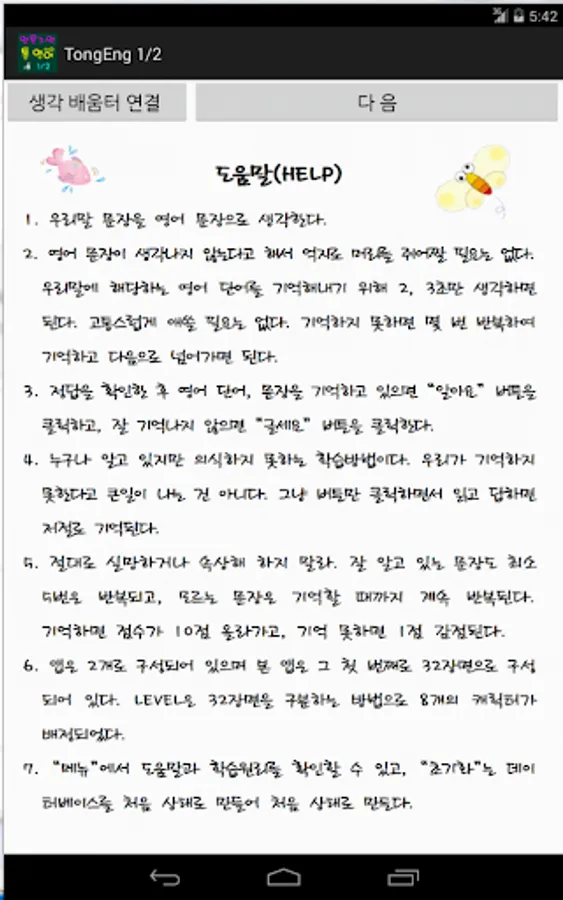 3G 5:42
TongEng 1/2
생각 배움터 연결
다 음
도움말(HELP)
1. 우리말 문장을 영어 문장으로 생각한다.
2. 영어 문장이 생각나지 않는다고 해서 억지로 머리를 쥐어짤 필요는 없다.
우리말에 해당하는 영어 단어를 기억해내기 위해 2, 3초만 생각하면
된다. 고통스럽게 애쓸 필요는 없다. 기억하지 못하면 몇 번 반복하여
기억하고 다음으로 넘어가면 된다.
3. 정답을 확인한 후 영어 단어, 문장을 기억하고 있으면 "알아요" 버튼을
클릭하고, 잘 기억나지 않으면 "글세요" 버튼을 클릭한다.
4. 누구나 알고 있지만 의식하지 못하는 학습방법이다. 우리가 기억하지
못한다고 큰일이 나는 건 아니다. 그냥 버튼만 클릭하면서 읽고 답하면
저절로 기억된다.
5. 절대로 실망하거나 속상해 하지 말라. 잘 알고 있는 문장도 최소
5번은 반복되고, 모르는 문장은 기억할 때까지 계속 반복된다.
기억하면 점수가 10점 올라가고, 기억 못하면 1점 감점된다.
6. 앱은 2개로 구성되어 있으며 본 앱은 그 첫 번째로 32장면으로 구성
되어 있다. LEVEL은 32장면을 구분하는 방법으로 8개의 캐릭터가
배정되었다.
7. "메뉴"에서 도움말과 학습원리를 확인할 수 있고, "초기화"는 데이
터베이스를 처음 상태로 만들어 처음 상태로 만든다.